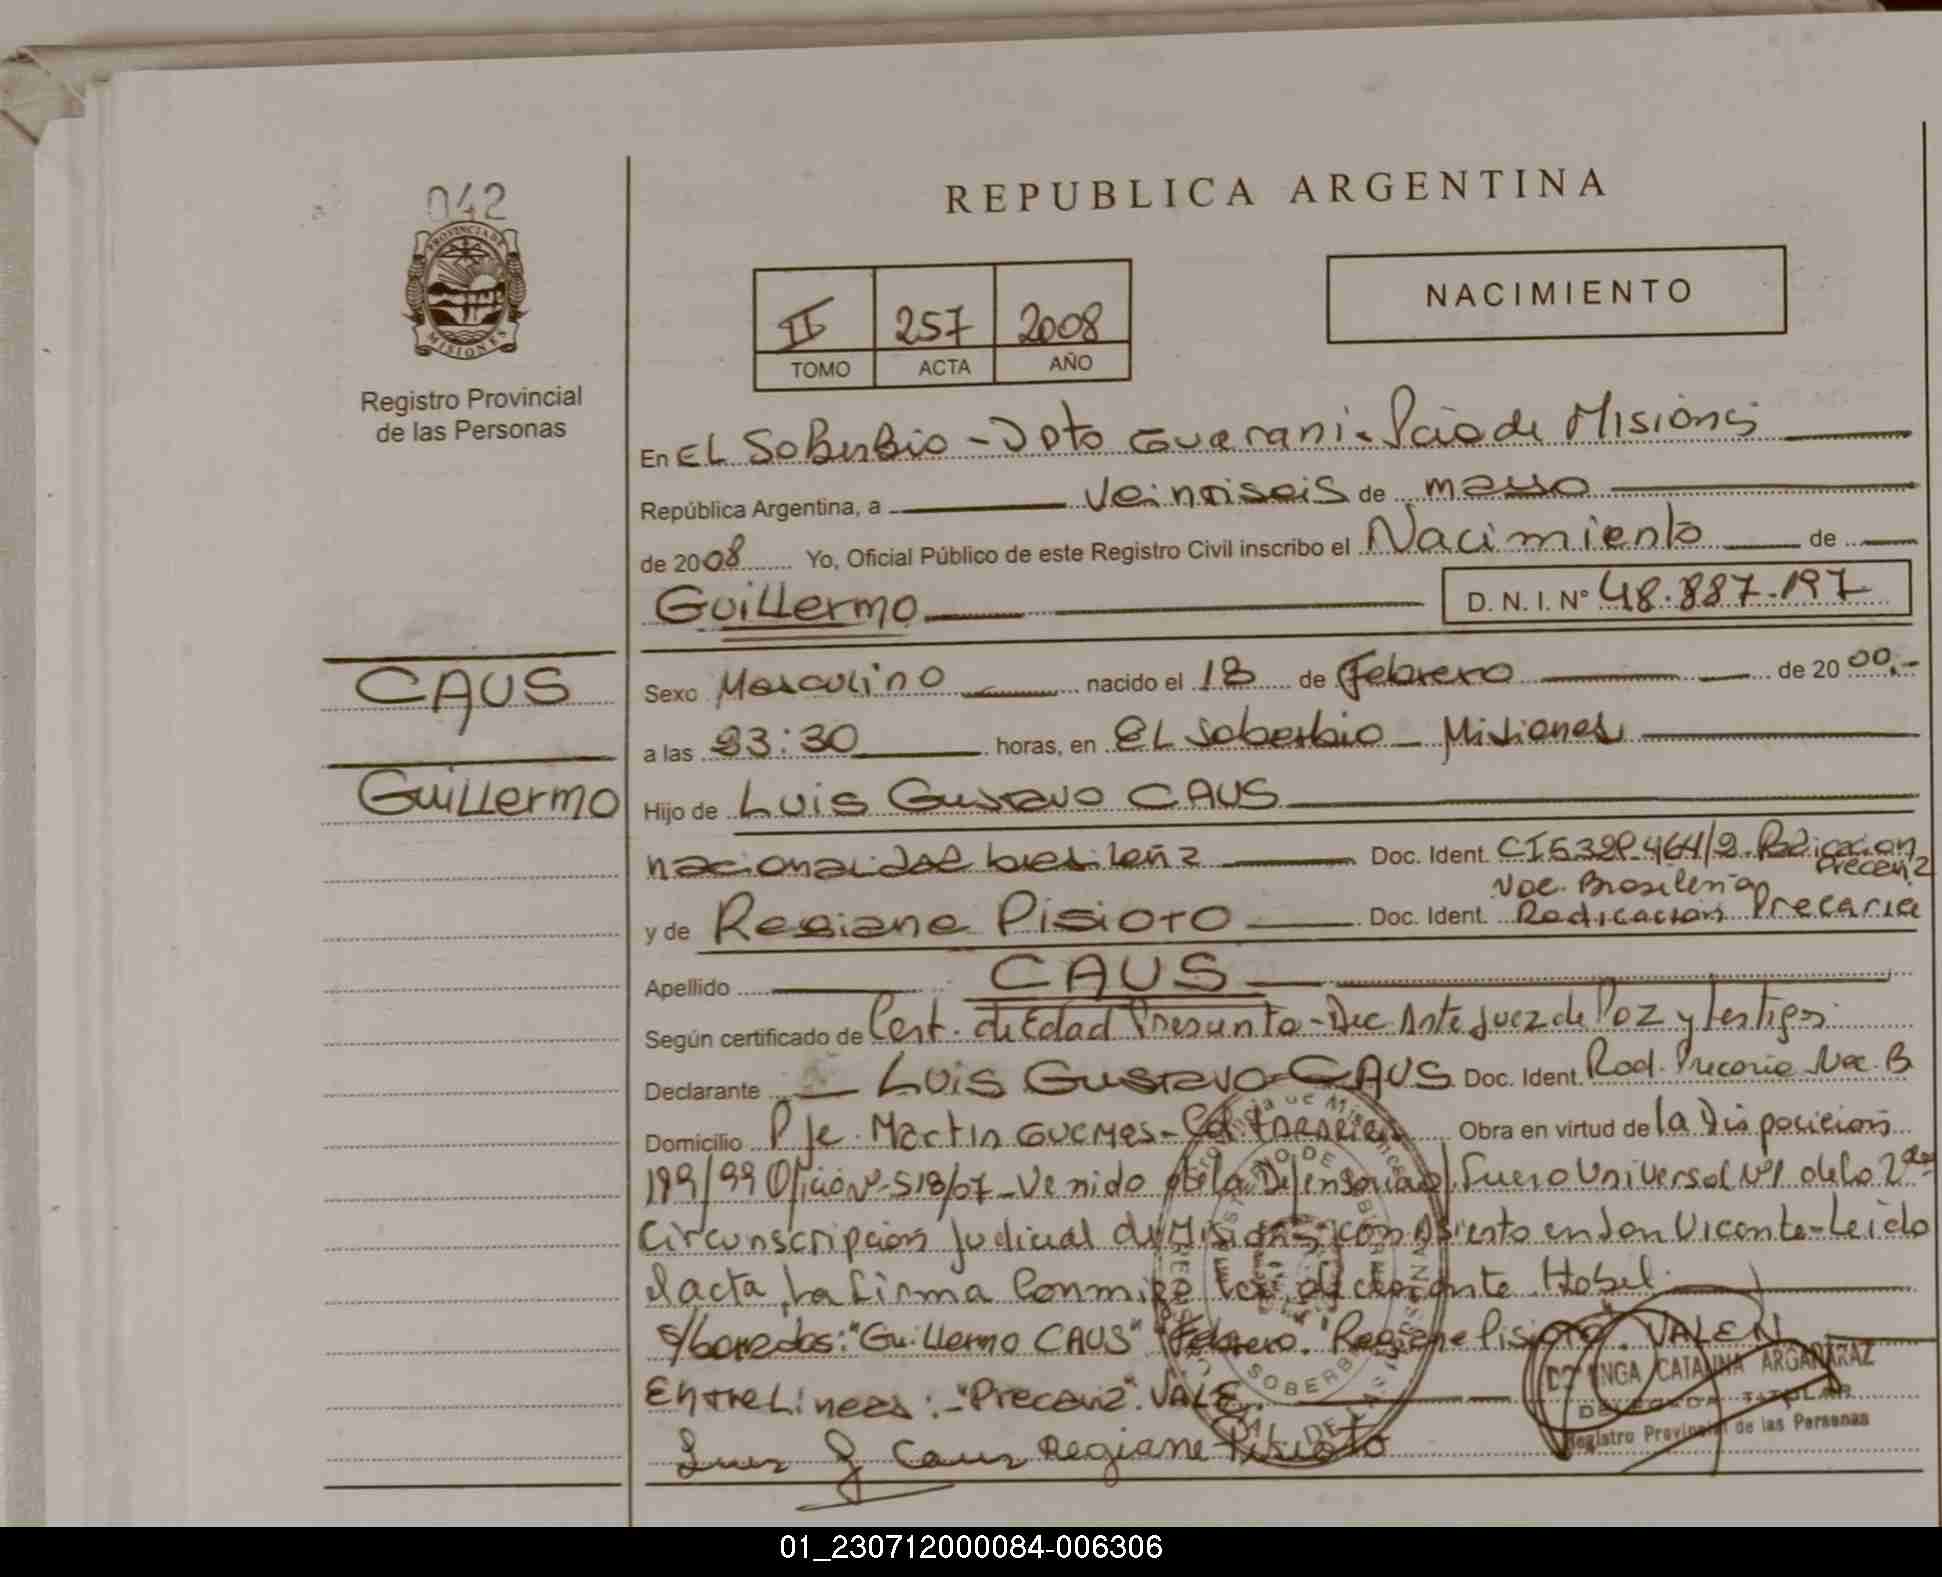 042
PROVINCIA DE
MISIONES
Registro Provincial
de las Personas
REPUBLICA ARGENTINA
II 257 2008
TOMO ACTA AÑO
NACIMIENTO
En EL SoberBio - Dpto Guarani. Pcia de Misiones
República Argentina, a Veintiseis de mayo
de 2008 Yo, Oficial Público de este Registro Civil inscribo el Nacimiento de
Guillermo D. N. I. Nº 48.887.197
CAUS
Guillermo
Sexo Masculino nacido el 18 de Febrero de 2000.-
a las 23:30 horas, en El Soberbio - Misiones
Hijo de Luis Gustavo CAUS
nacionalidad brasileña Doc. Ident. Radicacion
Precaria
Nac. Brasileña
y de Regiane Pisioto Doc. Ident. Radicacion Precaria
Apellido CAUS
Según certificado de Cert. de Edad Presunta - Dec Ante Juez de Paz y testigos
Declarante Luis Gustavo CAUS Doc. Ident. Rad. Precaria Nac. B
Domicilio Pje. Martin Guemes - Obra en virtud de la Disposicion
199/99 Oficio Nº 518/07 - Venido de la Defensoria Fuero Universal Nº 1 de la 2da
Circunscripcion Judicial de Misiones con Asiento en San Vicente - Leido
el acta, la firma Conmigo el declarante.
s/borrados: "Guillermo CAUS" "Febrero. "Regiane Pisioto". VALEN
EntreLineas: - "Precaria". VALE.
Luis G Caus Regiane Pisioto
CATALINA ARGAÑARAZ
DELEGADA TITULAR
Registro Provincial de las Personas
01_230712000084-006306